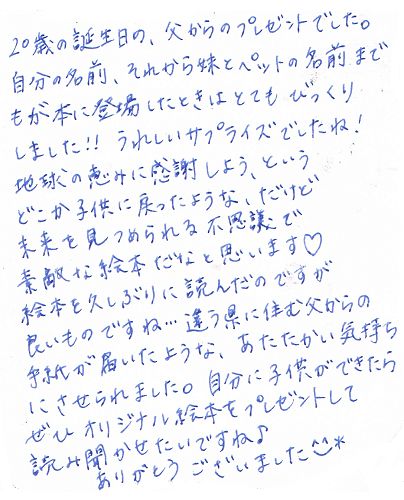 20歳の誕生日の、父からのプレゼントでした。
自分の名前、それから妹とペットの名前まで
もが本に登場したときはとてもびっくり
しました!! うれしいサプライズでしたね!
地球の恵みに感謝しよう、という
どこか子供に戻ったような、だけど
未来を見つめられる不思議で
素敵な絵本だなと思います♡
絵本を久しぶりに読んだのですが
良いものですね… 違う県に住む父からの
手紙が届いたような、あたたかい気持ち
にさせられました。自分に子供ができたら
ぜひオリジナル絵本をプレゼントして
読み聞かせたいですね♪
ありがとうございました^^*